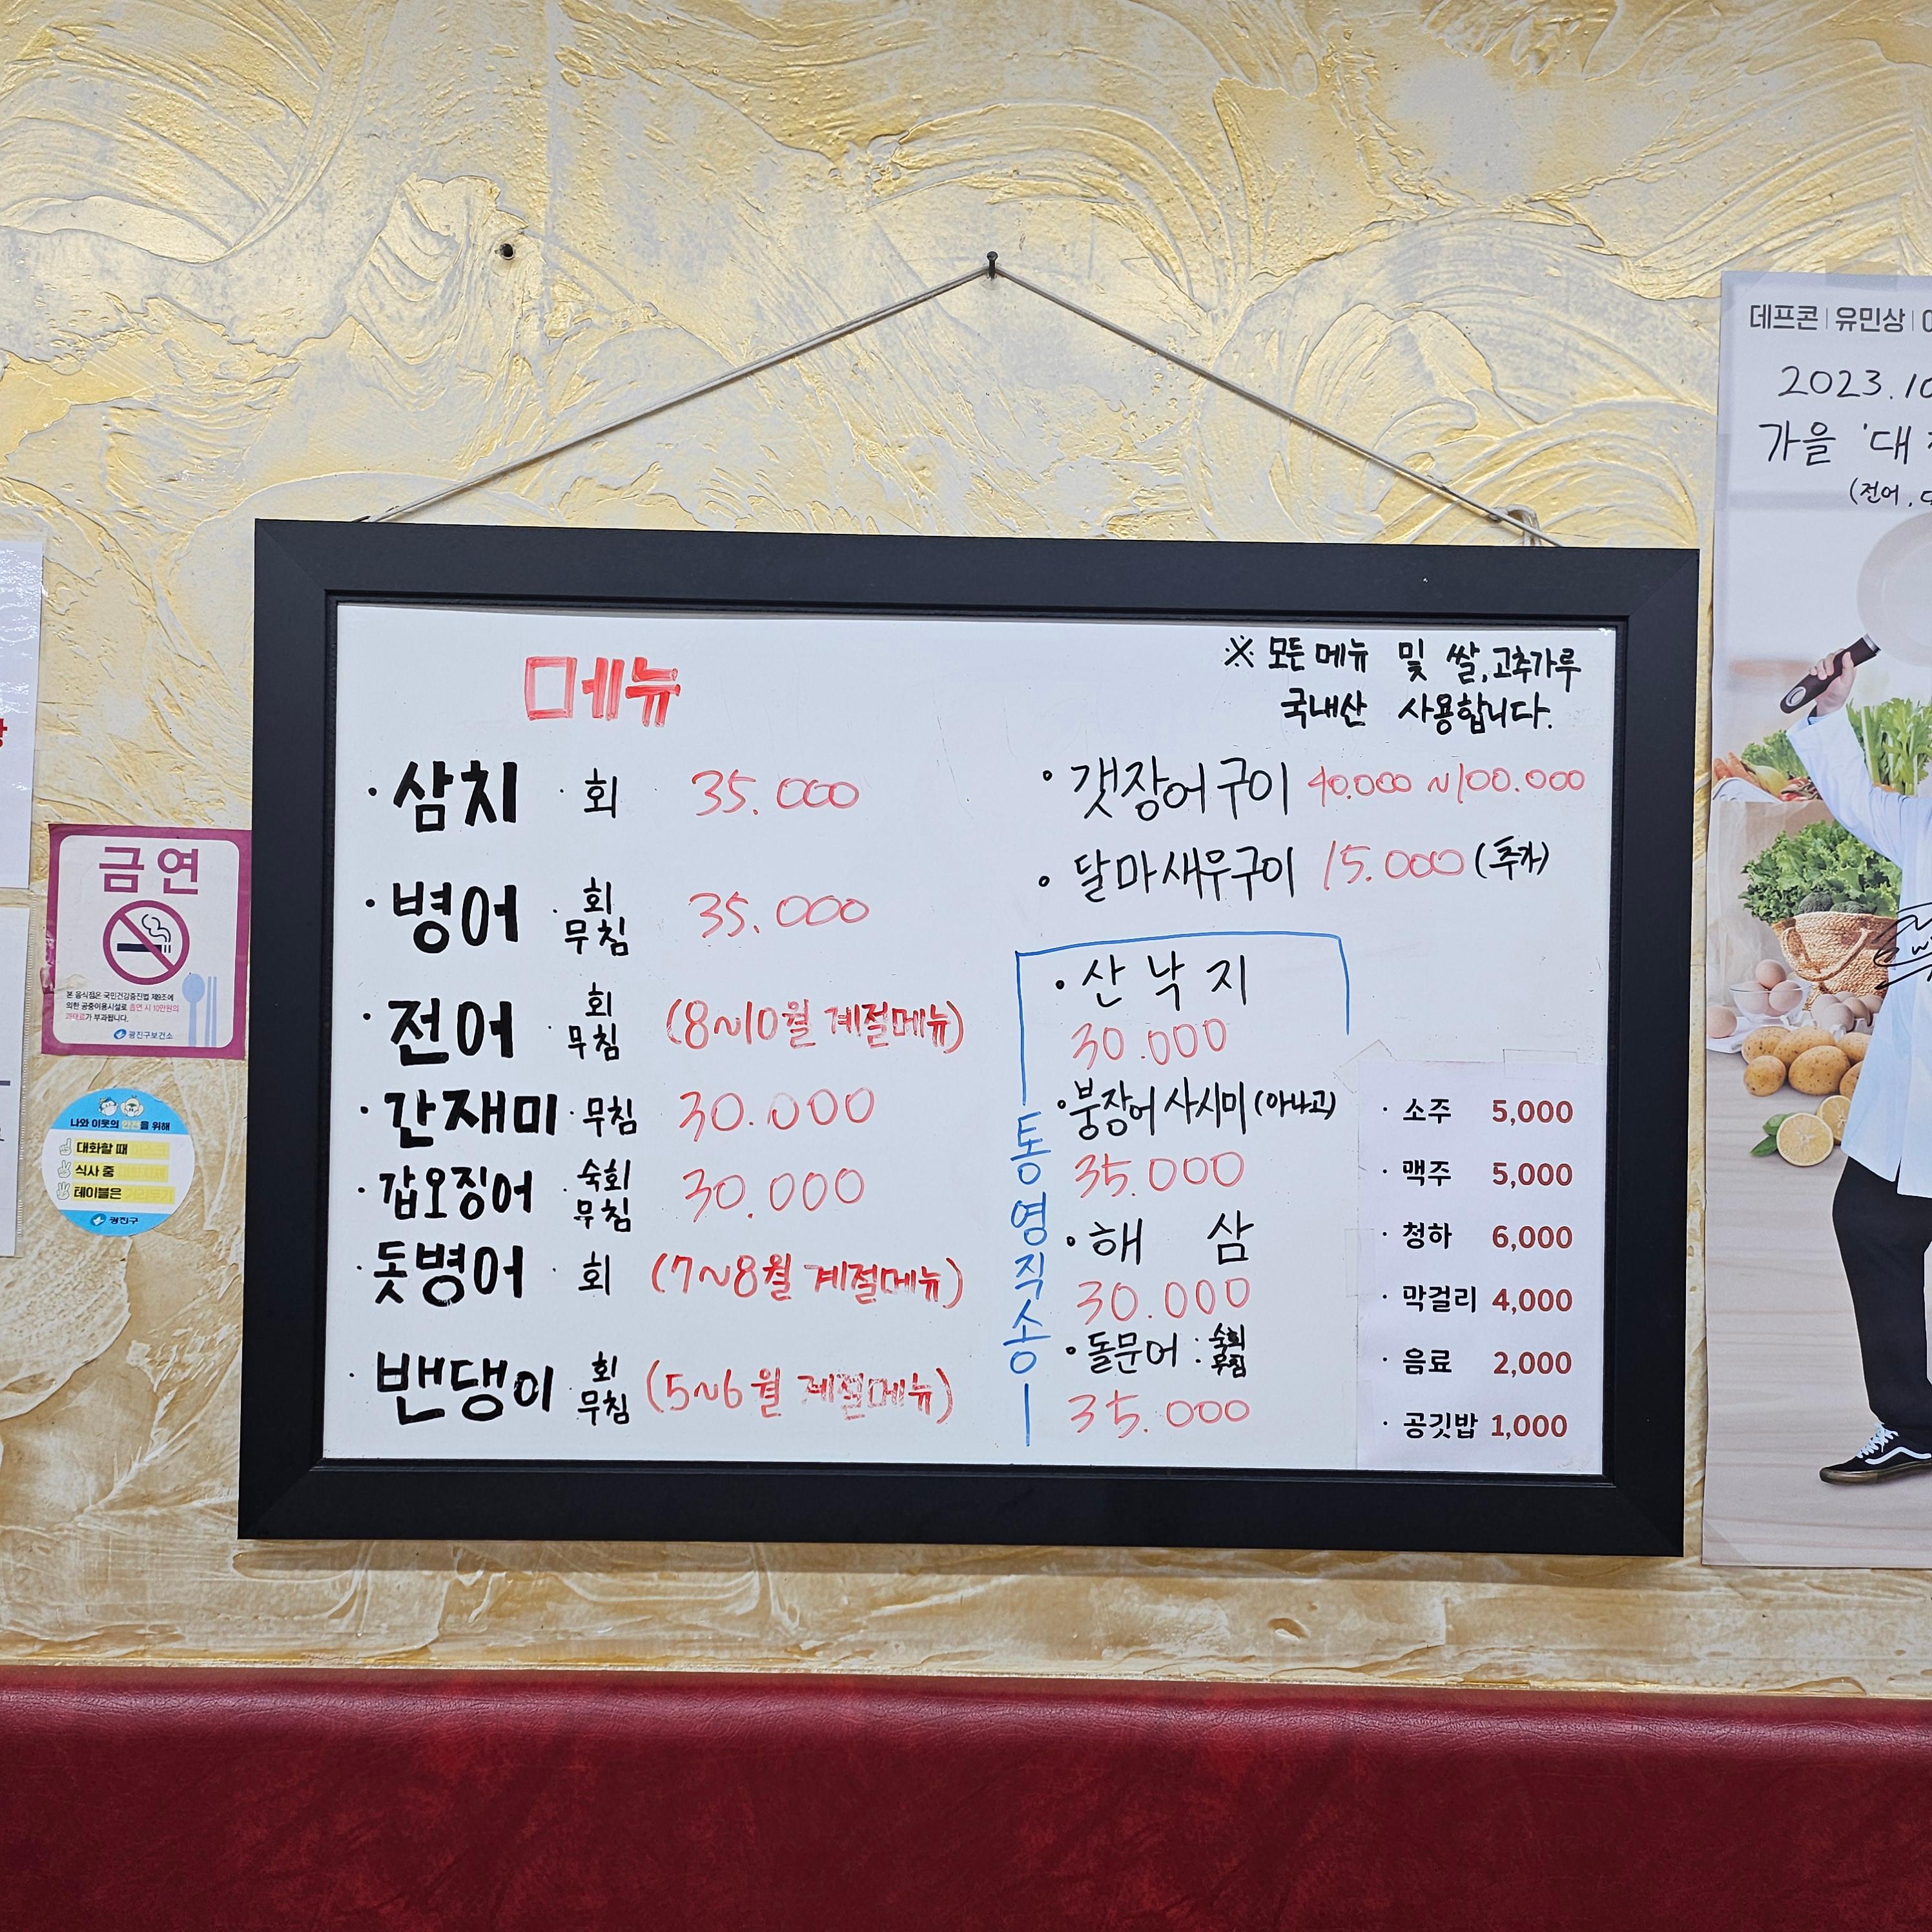 메뉴
※ 모든 메뉴 및 쌀, 고추가루
국내산 사용합니다.
· 삼치 · 회 35.000
· 병어 · 회 무침 35.000
· 전어 · 회 무침 (8~10월 계절메뉴)
· 간재미 · 무침 30.000
· 갑오징어 · 숙회 무침 30.000
· 돗병어 · 회 (7~8월 계절메뉴)
· 밴댕이 · 회 무침 (5~6월 계절메뉴)
· 갯장어구이 40.000 ~ 100.000
· 달마새우구이 15.000 (추가)
통영직송
· 산낙지
30.000
· 붕장어 사시미 (아나고)
35.000
· 해삼
30.000
· 돌문어 : 숙회 무침
35.000
· 소주 5,000
· 맥주 5,000
· 청하 6,000
· 막걸리 4,000
· 음료 2,000
· 공깃밥 1,000
금연
본 음식점은 국민건강증진법 제9조에
의한 공중이용시설로 흡연 시 10만원의
과태료가 부과됩니다.
광진구보건소
나와 이웃의 안전을 위해
대화할 때
식사 중
테이블은
광진구
데프콘 | 유민상 |
2023.10
가을 '대
(전어,